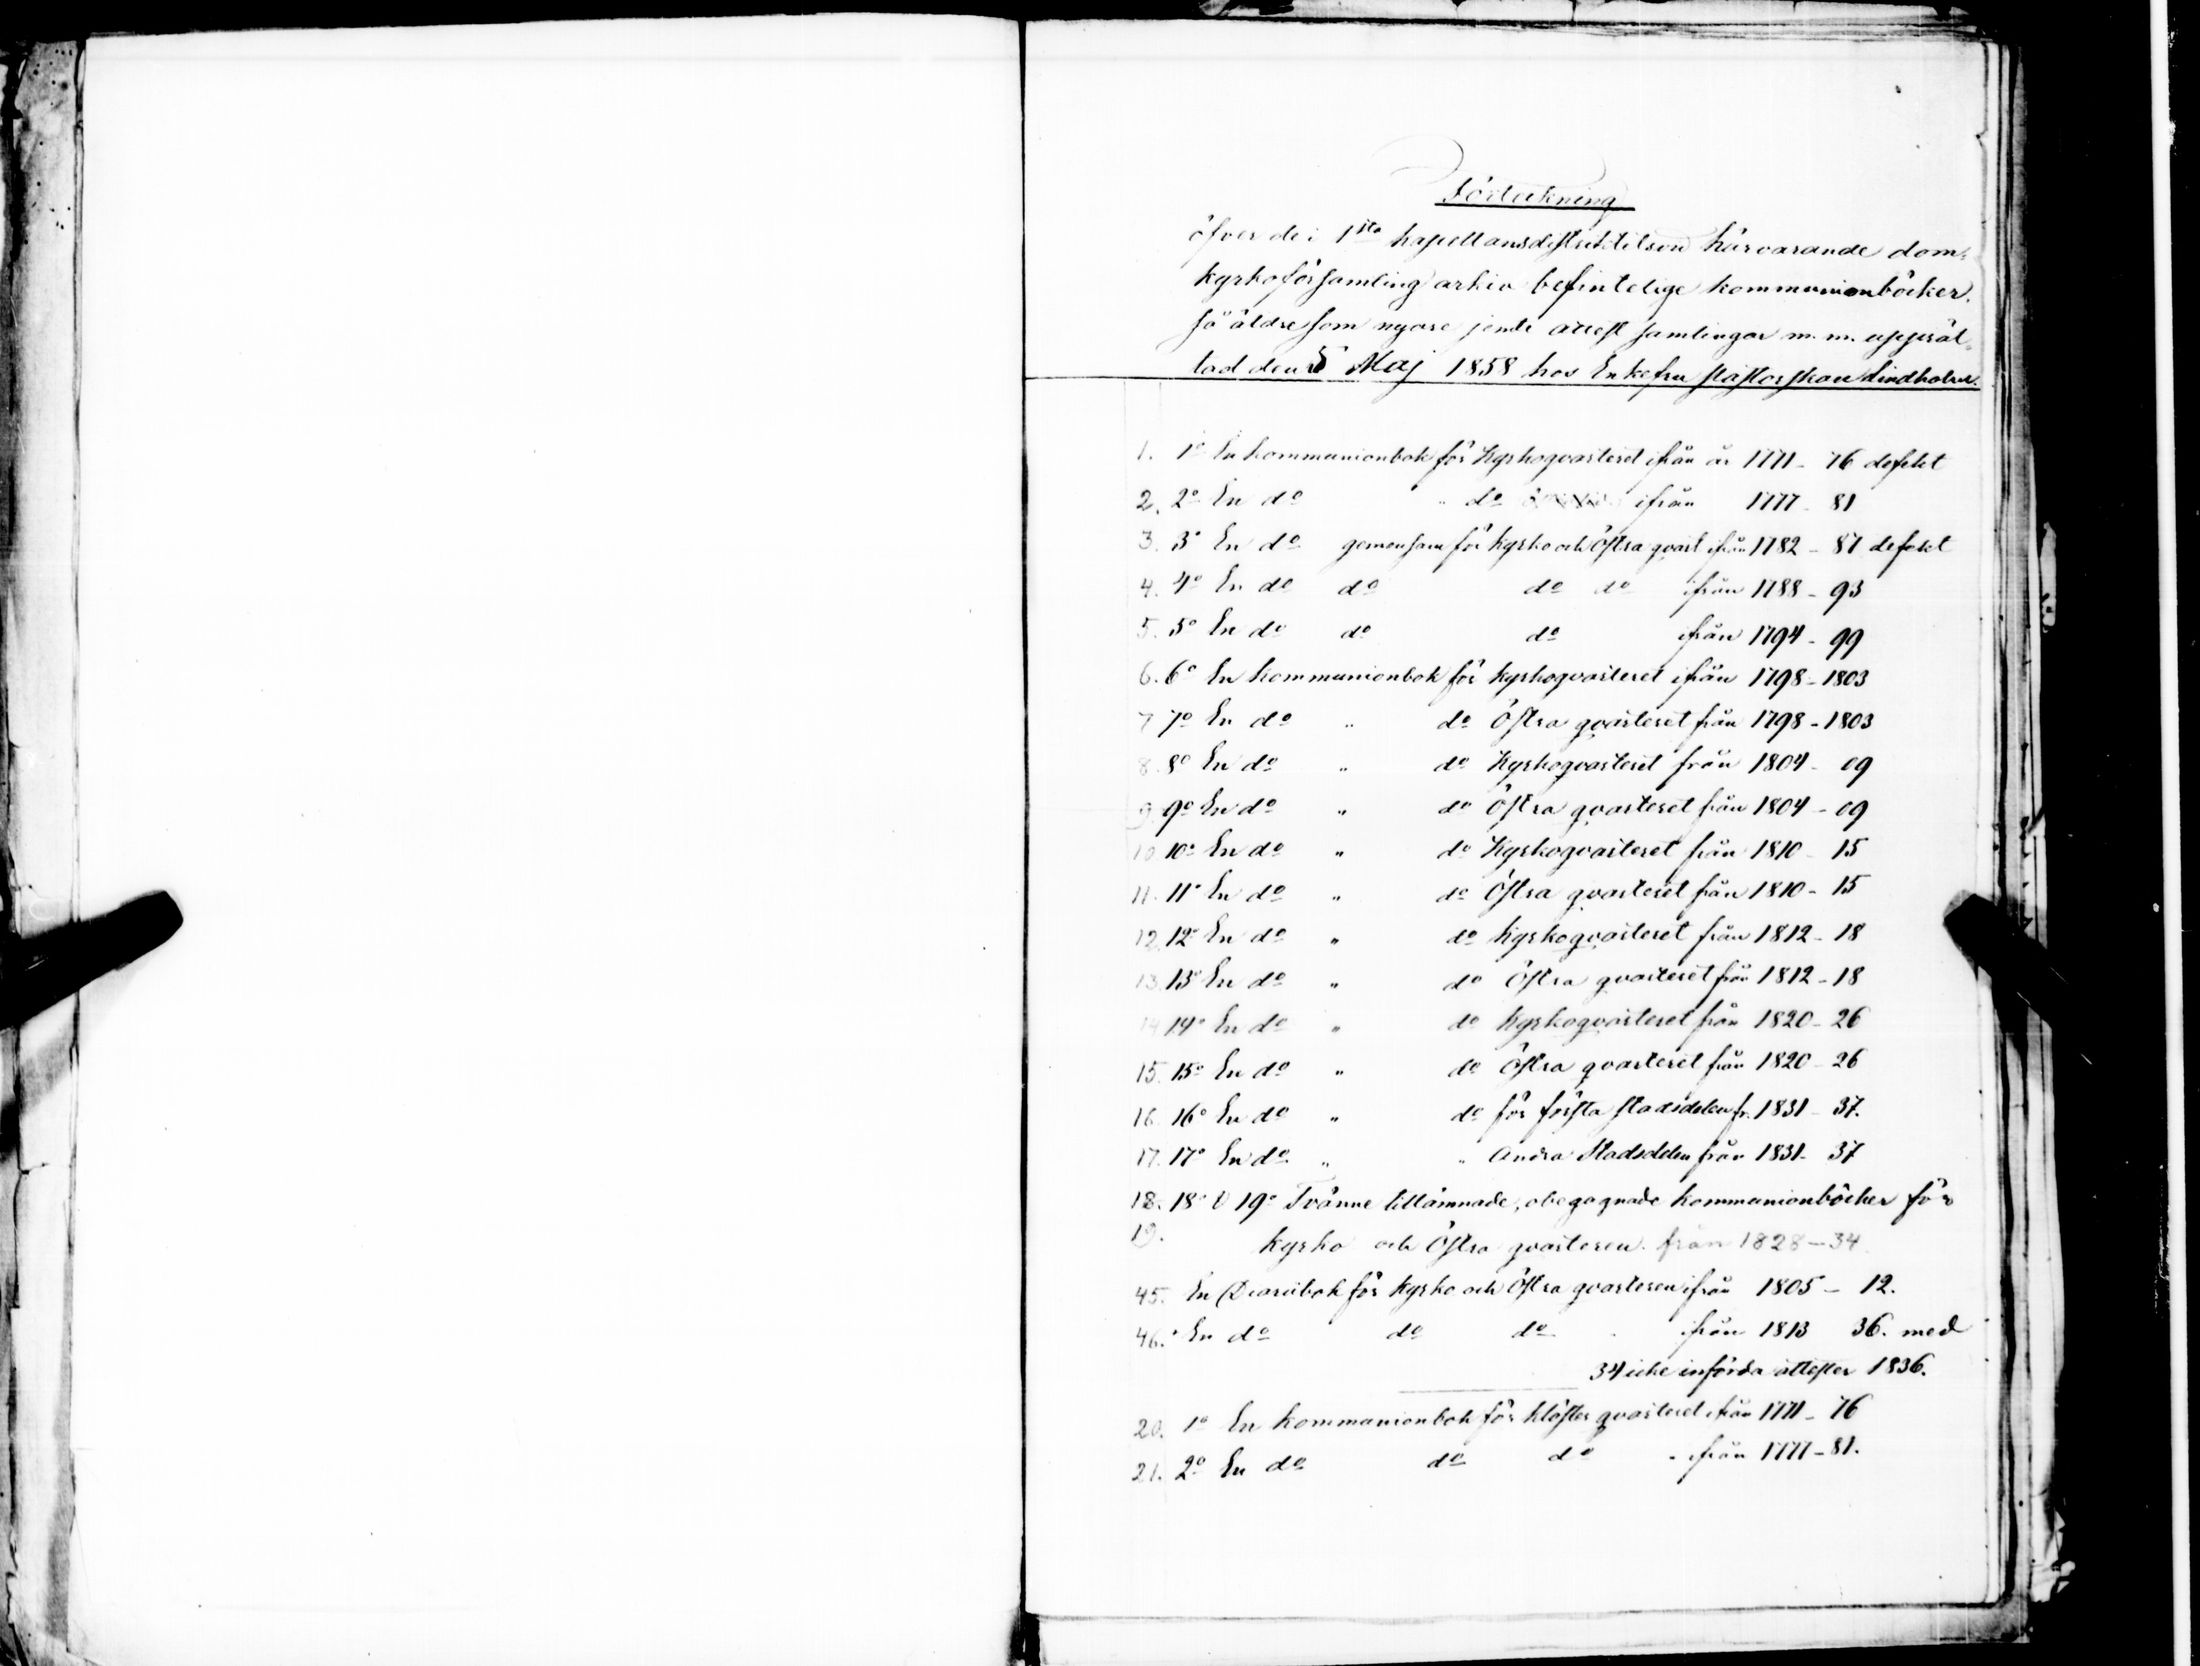 Förteckning
öfver de i 1sta kapellansdistriktet i härvarande dom-
kyrkoförsamling arkiv befintelige kommunionböcker,
så äldre som nyare jemte attest samlingar m. m. upprät-
tad den 5 Maj 1858 hos Enkefru Pastorskan Lindholm.
1. 1o En kommunionbok för Kyrkoqvarteret ifrån år 1771 - 76 defekt
2. 2o En do " do ifrån 1777 - 81
3. 3o En do gemensam för Kyrko och Östra qvart ifrån 1782 - 87 defekt
4. 4o En do do do do ifrån 1788 - 93
5. 5o En do do do ifrån 1794 - 99
6. 6o En kommunionbok för kyrkoqvarteret ifrån 1798 - 1803
7 7o En do " do Östra qvarteret från 1798 - 1803
8. 8o En do " do Kyrkoqvarteret från 1804 - 09
9. 9o En do " do Östra qvarteret från 1804 - 09
10 10o En do " do Kyrkoqvarteret från 1810 - 15
11. 11o En do " do Östra qvarteret från 1810 - 15
12. 12o En do " do Kyrkoqvarteret från 1812 - 18
13. 13o En do " do Östra qvarteret från 1812 - 18
14 14o En do " do Kyrkoqvarteret från 1820 - 26
15. 15o En do " do Östra qvarteret från 1820 - 26
16. 16o En do " do för första stadsdelen fr. 1831 - 37.
17. 17o En do " " Andra Stadsdelen från 1831 - 37
18. 18o & 19o Tvänne tillämnade, obegagnade kommunionböcker för
19. Kyrko och Östra qvarteren från 1828 - 34
45. En Diariibok för Kyrko och Östra qvarteren ifrån 1805 - 12.
46. En do do do ifrån 1813 36. med
34 icke införda attester 1836.
20. 1o En kommunionbok för Klöster qvarteret ifrån 1771 - 76
21. 2o En do do do " ifrån 1777 - 81.